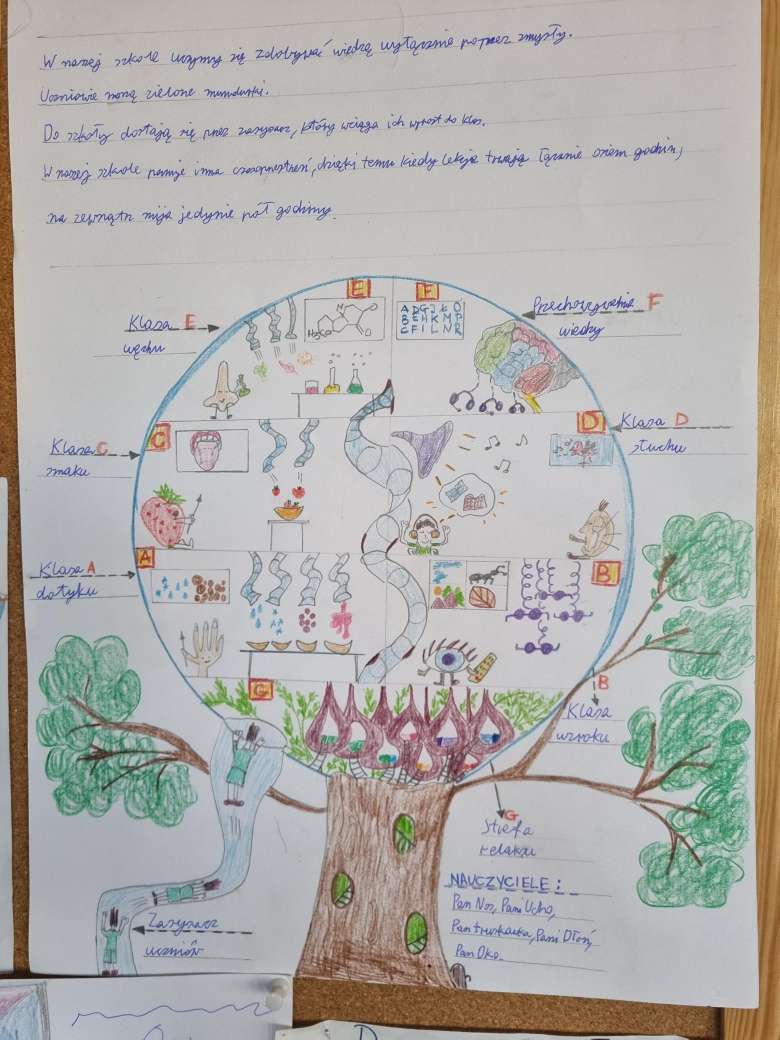 W naszej szkole uczymy się zdobywać wiedzę wyłącznie poprzez zmysły.
Uczniowie noszą zielone mundurki.
Do szkoły dostają się przez zasysacz, który wciąga ich wprost do klas.
W naszej szkole panuje inna czasoprzestrzeń, dzięki temu kiedy lekcje trwają łącznie osiem godzin,
na zewnątrz mija jedynie pół godziny.
E
F
Klasa E
węchu
H₃CO
N
A D G J Ł O
B E H K M P
C F I L N R
Przechowywanie F
wiedzy
C
Klasa C
smaku
D
Klasa D
słuchu
A
Klasa A
dotyku
B
G
B
Klasa
wzroku
G
Strefa
relaksu
NAUCZYCIELE:
Pan Nos, Pani Ucho,
Pan Truskawka, Pani Dłoń,
Pan Oko.
Zasysacz
uczniów